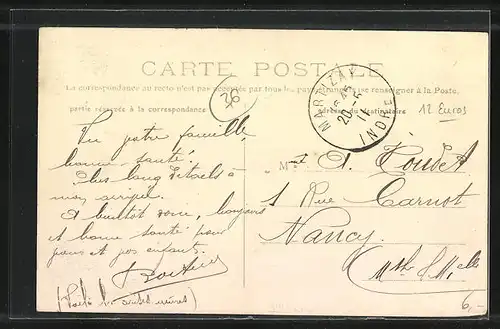 CARTE POSTALE
La correspondance au recto n'est pas acceptée par tous les pays étrangers (se renseigner à la Poste.
partie réservée à la correspondance
adresse du destinataire
36
MARTIZAY
16 45
20-5
11
INDRE
12 Euros
Vu votre famille,
bonne santé.
Plus long détails à
mon
A bientôt bonjours
et bonne santé pour
vous et vos enfants.
M
A.
1 Rue Carnot
Nancy
Mthe & Mlle
6,-